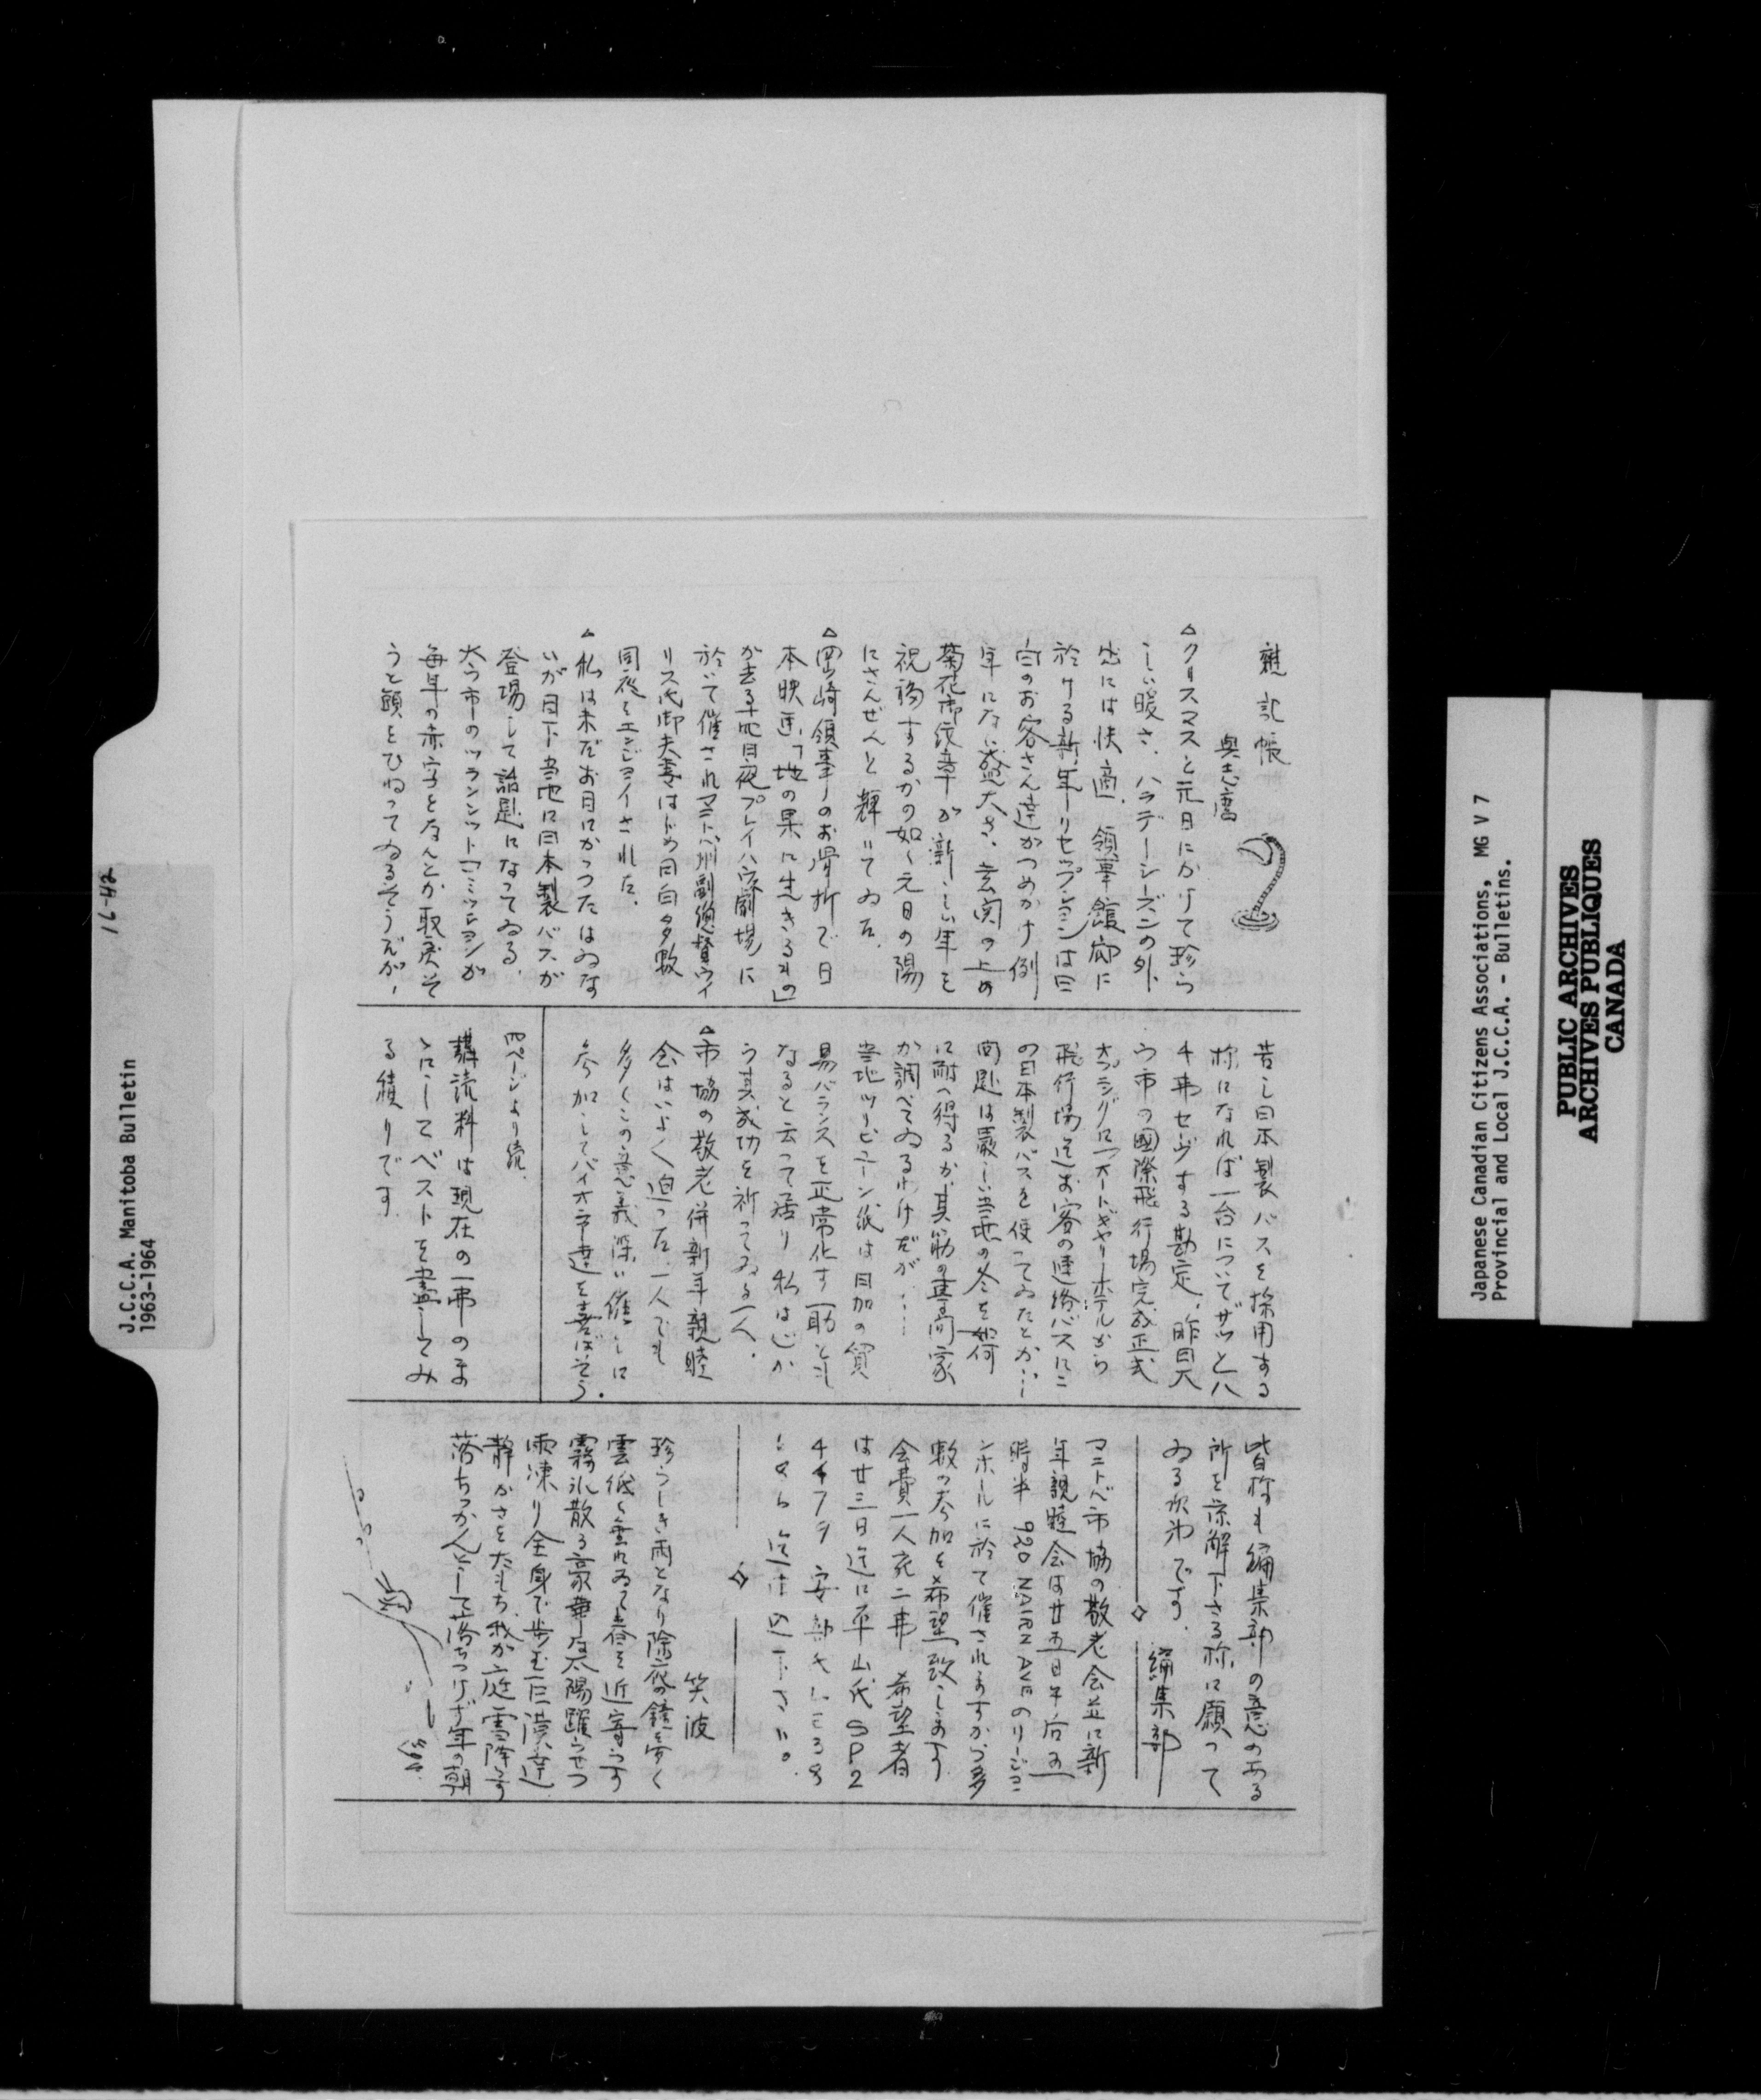 雑記帳
奥志摩
△クリスマスと元日にかけて珍ら
しい暖さ、ハラデーシーズンの外
出には快適、領事館邸に
於ける新年リセプションは日
白のお客さん達がつめかけ例
年にない盛大さ、玄関の上の
菊花御紋章が新しい年を
祝福するかの如く元日の陽
にさんぜんと輝いてゐた。
△岡崎領事のお骨折で日
本映画「地の果に生きるもの」
が去る十四日夜プレイハウス劇場に
於いて催されマニトバ州副総督ウィ
リス氏御夫妻はじめ日白多数
同夜をエンジョイされた。
△私は未だお目にかゝつたはゐな
いが目下当地に日本製バスが
登場して話題になってゐる。
大ウ市のツランシットコミッションが
毎年の赤字をなんとか取戻そ
うと頭をひねってゐるそうだが、
若し日本製バスを採用する
様になれば一台についてザッと八
千弗セーヴする勘定、昨日大
ウ市の國際飛行場完成正式
オープニングにフォートギャリーホテルから
飛行場迄お客の連絡バスに二
の日本製バスを使ってゐたとか…
問題は厳しい当地の冬を如何
に耐へ得るか其筋の専問家
が調べてゐるわけだが……
当地ツリビューン紙は日加の貿
易バランスを正常化す一助とも
なると云って居り私はひか
う其成功を祈ってゐる一人。
△市協の敬老併新年親睦
会はいよ〱迫った、一人でも
多くこの意義深い催しに
参加してパイオニア達を喜ばそう。
四ページより続、
購読料は現在の一弗のま
ゝにしてベストを盡してみ
る積りです。
皆様も編集部の意のある
所を諒解下さる様に願って
ゐる次第です。
編集部
マニトバ市協の敬老会並に新
年親睦会は廿五日午后五
時半 920 NAIRN AVEのリージョ
ンホールに於て催されますから多
数の参加を希望致します
会費一人宛二弗 希望者
は廿三日迄に平山氏 SP2
笑波
珍らしき雨となり除夜の鐘を聞く
雲低く垂れゐて春を近寄らす
霧氷散る豪華な太陽躍らせつ
雨凍り全身で歩む
静かさをたもち我が庭雪降らす
落ちつかんとして落ちつけず年の朝
16-42
J.C.C.A. Manitoba Bulletin
1963-1964
Japanese Canadian Citizens Associations, MG V 7
Provincial and Local J.C.C.A. - Bulletins.
PUBLIC ARCHIVES
ARCHIVES PUBLIQUES
CANADA